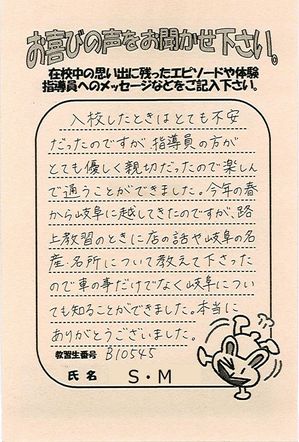 お喜びの声をお聞かせ下さい。
在校中の思い出に残ったエピソードや体験
指導員へのメッセージなどをご記入下さい。
入校したときはとても不安
だったのですが、指導員の方が
とても優しく親切だったので楽しん
で通うことができました。今年の春
から岐阜に越してきたのですが、路
上教習のときに店の話や岐阜の名
産、名所について教えて下さった
ので車の事だけでなく岐阜につい
ても知ることができました。本当に
ありがとうございました。
教習生番号 B10545
氏名 S・M